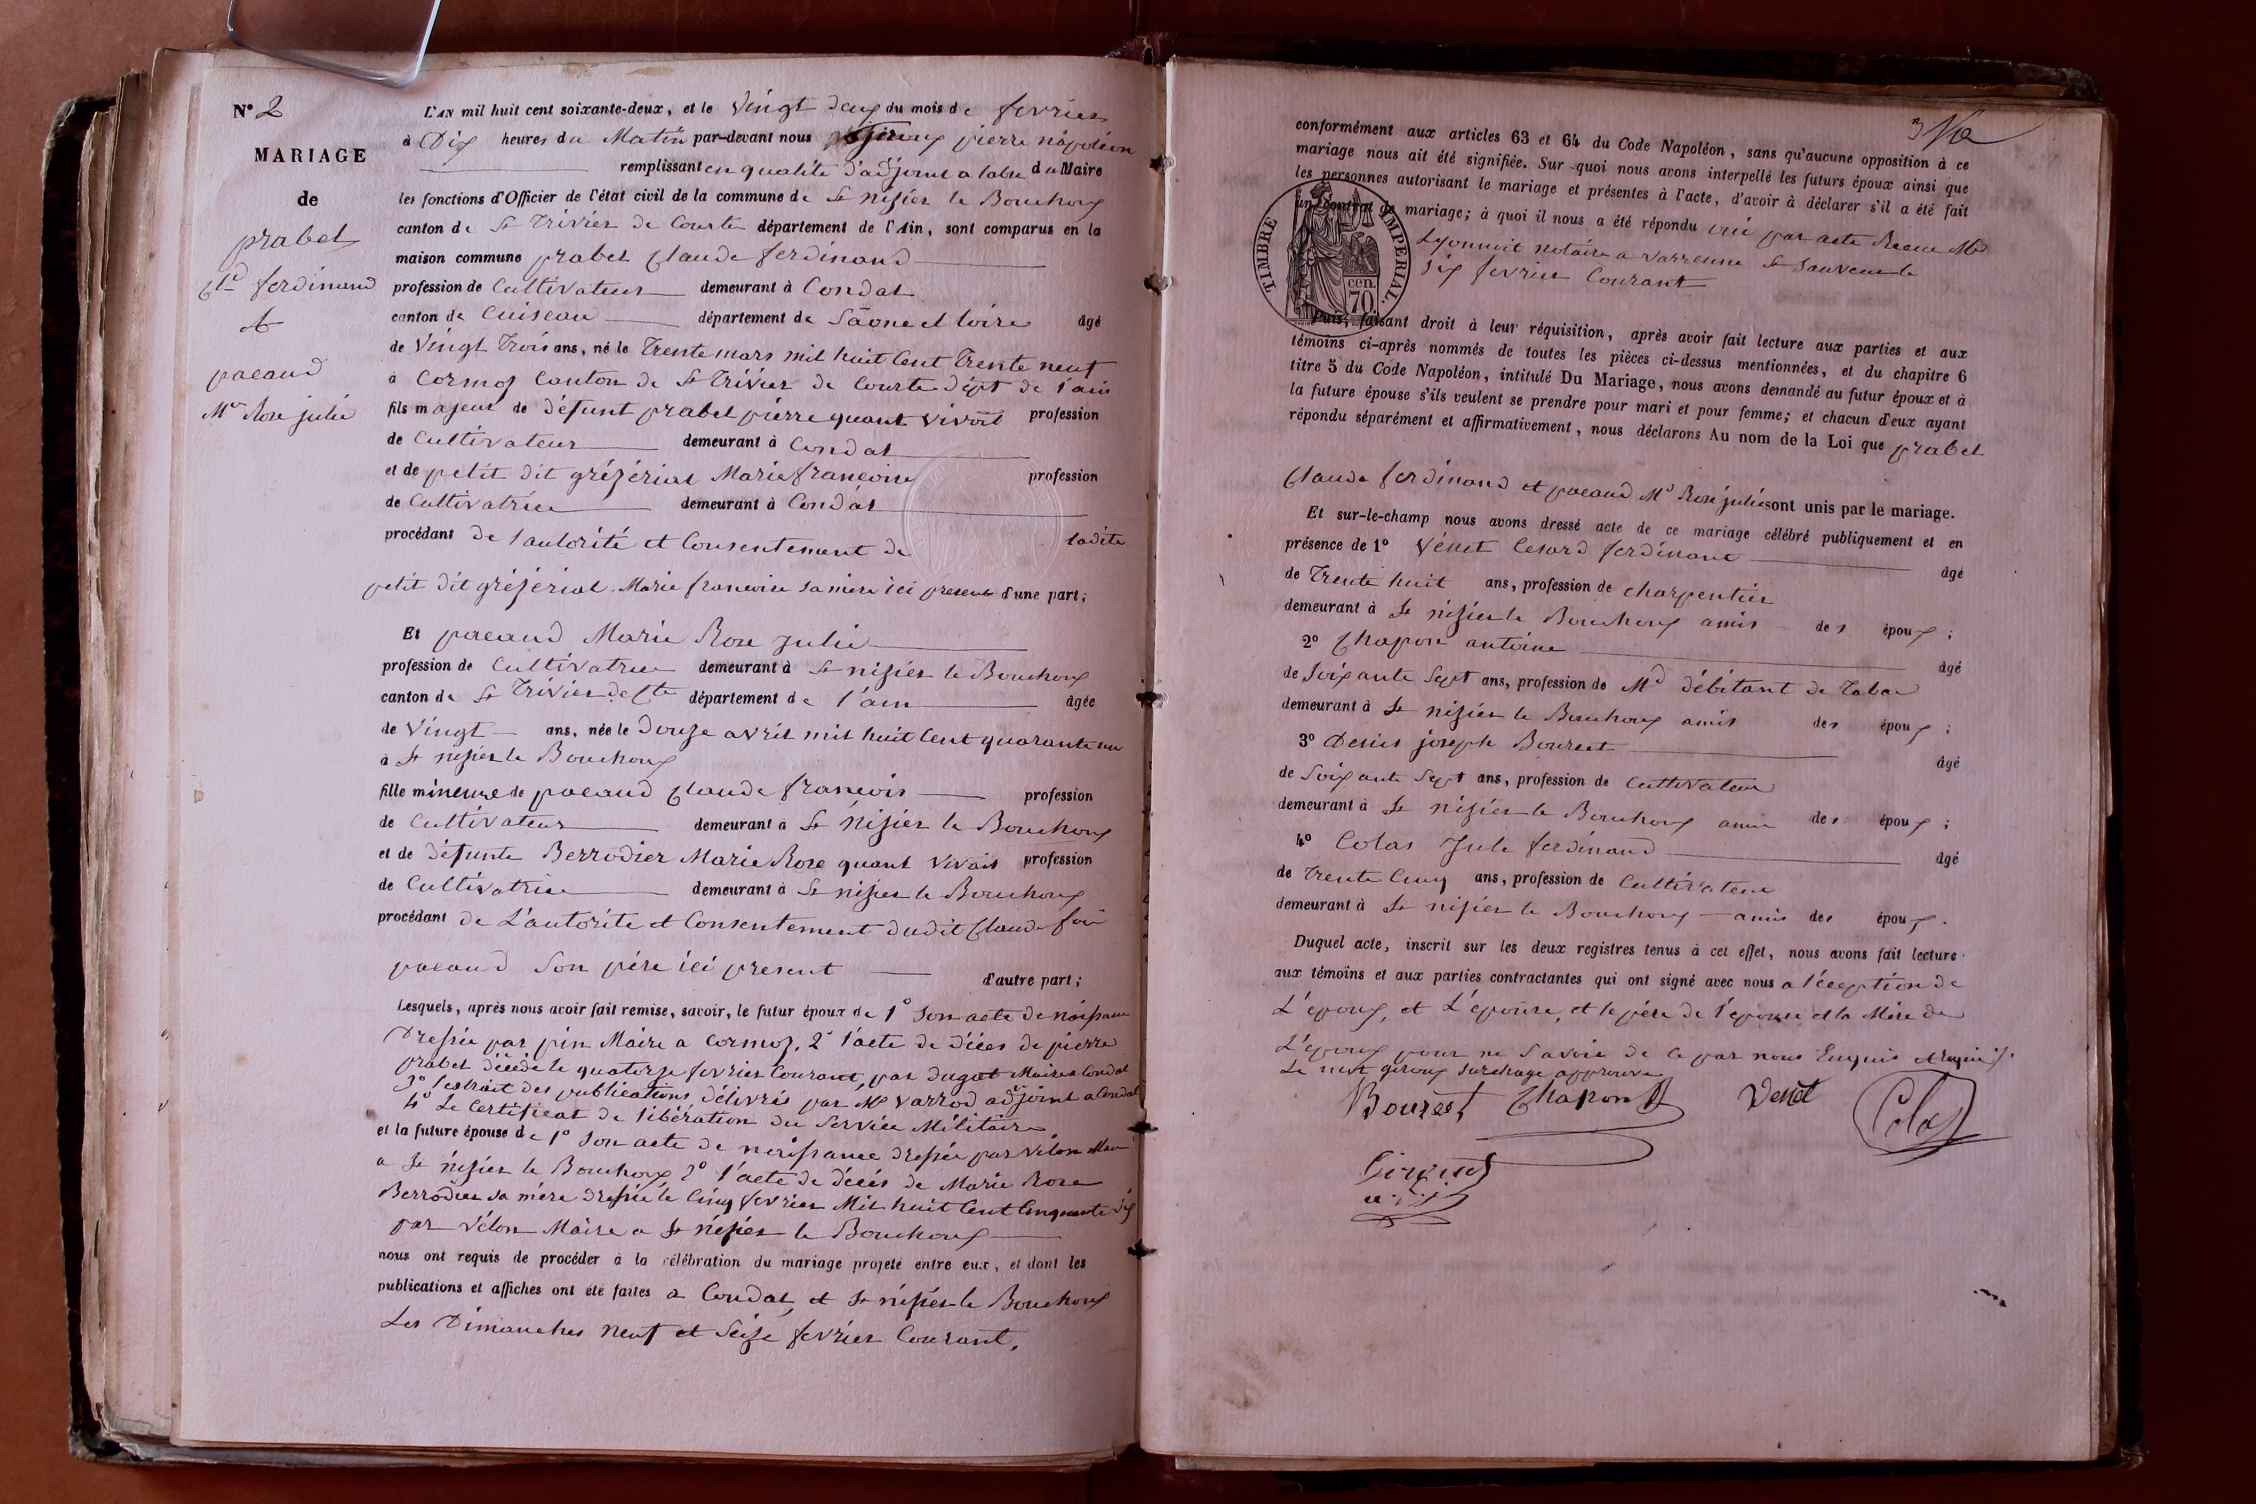 N° 2
MARIAGE
de
prabel
Cde ferdinand
&
pacaud
Mie Rose julie
L'AN mil huit cent soixante-deux, et le Vingt deux du mois de fevrier
à Dix heures du Matin par-devant nous giroux pierre napoléon
remplissant en qualité d'adjoint a labse du Maire
les fonctions d'Officier de l'état civil de la commune de St nizier le Bouchoux
canton de St Trivier de Courte département de l'Ain, sont comparus en la
maison commune prabel Claude ferdinand
profession de Cultivateur demeurant à Condal
canton de Cuiseau département de Saone et loire âgé
de Vingt Trois ans, né le Trente mars mil huit Cent Trente neuf
à Cormoz Canton de St Trivier de Courte dépt de l'ain
fils majeur de défunt prabel pierre quant vivoit profession
de Cultivateur demeurant à Condal
et de petit dit grézérial Marie francoise profession
de Cultivatrice demeurant à Condal
procédant de l'autorité et Consentement de ladite
petit dit grézérial Marie francoise sa mere ici presente d'une part;
Et pacaud Marie Rose Julie
profession de Cultivatrice demeurant à St nizier le Bouchoux
canton de St Trivier de Cte département de l'ain âgée
de Vingt ans, née le Douze avril mil huit Cent quarante un
à St nizier le Bouchoux
fille mineure de pacaud Claude francois profession
de Cultivateur demeurant à St Nizier le Bouchoux
et de défunte Berrodier Marie Rose quant vivait profession
de Cultivatrice demeurant à St nizier le Bouchoux
procédant de L'autorité et Consentement dudit Claude fois
pacaud Son père ici present d'autre part;
Lesquels, après nous avoir fait remise, savoir, le futur époux de 1° Son acte de naissance
Dressée par pin Maire a Cormoz, 2° l'acte de décès de pierre
prabel décédé le quatorze fevrier Courant, par dugat Maire a Condal
3° l'extrait des publications, délivrés par Mr Varrod adjoint a Condal
4° Le Certificat de libération du Service Militaire
et la future épouse de 1° Son acte de naissance dressée par Vélon Maire
a St nizier le Bouchoux 2° l'acte de décès de Marie Rose
Berrodier sa mère dressée le Cinq fevrier Mil huit Cent Cinquante dix
par Vélon Maire a St Nizier le Bouchoux
nous ont requis de procéder à la célébration du mariage projeté entre eux, et dont les
publications et affiches ont été faites a Condal, et St nizier le Bouchoux
Les Dimanches Neuf et Seize fevrier Courant.
conformément aux articles 63 et 64 du Code Napoléon, sans qu'aucune opposition à ce
mariage nous ait été signifiée. Sur quoi nous avons interpellé les futurs époux ainsi que
les personnes autorisant le mariage et présentes à l'acte, d'avoir à déclarer s'il a été fait
un contrat de mariage; à quoi il nous a été répondu oui par acte Recue Md
Lyonnoit notaire a varrenne St Sauveur le
Six fevrier Courant
TIMBRE IMPERIAL.
70 cen.
Puis, faisant droit à leur réquisition, après avoir fait lecture aux parties et aux
témoins ci-après nommés de toutes les pièces ci-dessus mentionnées, et du chapitre 6
titre 5 du Code Napoléon, intitulé Du Mariage, nous avons demandé au futur époux et à
la future épouse s'ils veulent se prendre pour mari et pour femme; et chacun d'eux ayant
répondu séparément et affirmativement, nous déclarons Au nom de la Loi que prabel
Claude ferdinand et pacaud Mie Rose julie sont unis par le mariage.
Et sur-le-champ nous avons dressé acte de ce mariage célébré publiquement et en
présence de 1° Vénet Cesard ferdinant âgé
de Trente huit ans, profession de charpentier
demeurant à St nizier le Bouchoux amis des époux;
2° Chapon antoine âgé
de Soixante Sept ans, profession de Md débitant de Tabac
demeurant à St nizier le Bouchoux amis des époux;
3° Denis joseph Bourcet âgé
de Soixante Sept ans, profession de Cultivateur
demeurant à St nizier le Bouchoux amis des époux;
4° Colas Jule ferdinand âgé
de Trente Cinq ans, profession de Cultivateur
demeurant à St nizier le Bouchoux amis des époux.
Duquel acte, inscrit sur les deux registres tenus à cet effet, nous avons fait lecture
aux témoins et aux parties contractantes qui ont signé avec nous a l'éception de
L'époux, et L'épouse, et le père de l'épouse et la Mère de
L'époux pour ne Savoir de ce par nous Enquis et requis.
Le mot giroux surchage approuvé
Bourcet Chapon Venet Colas
Giroux